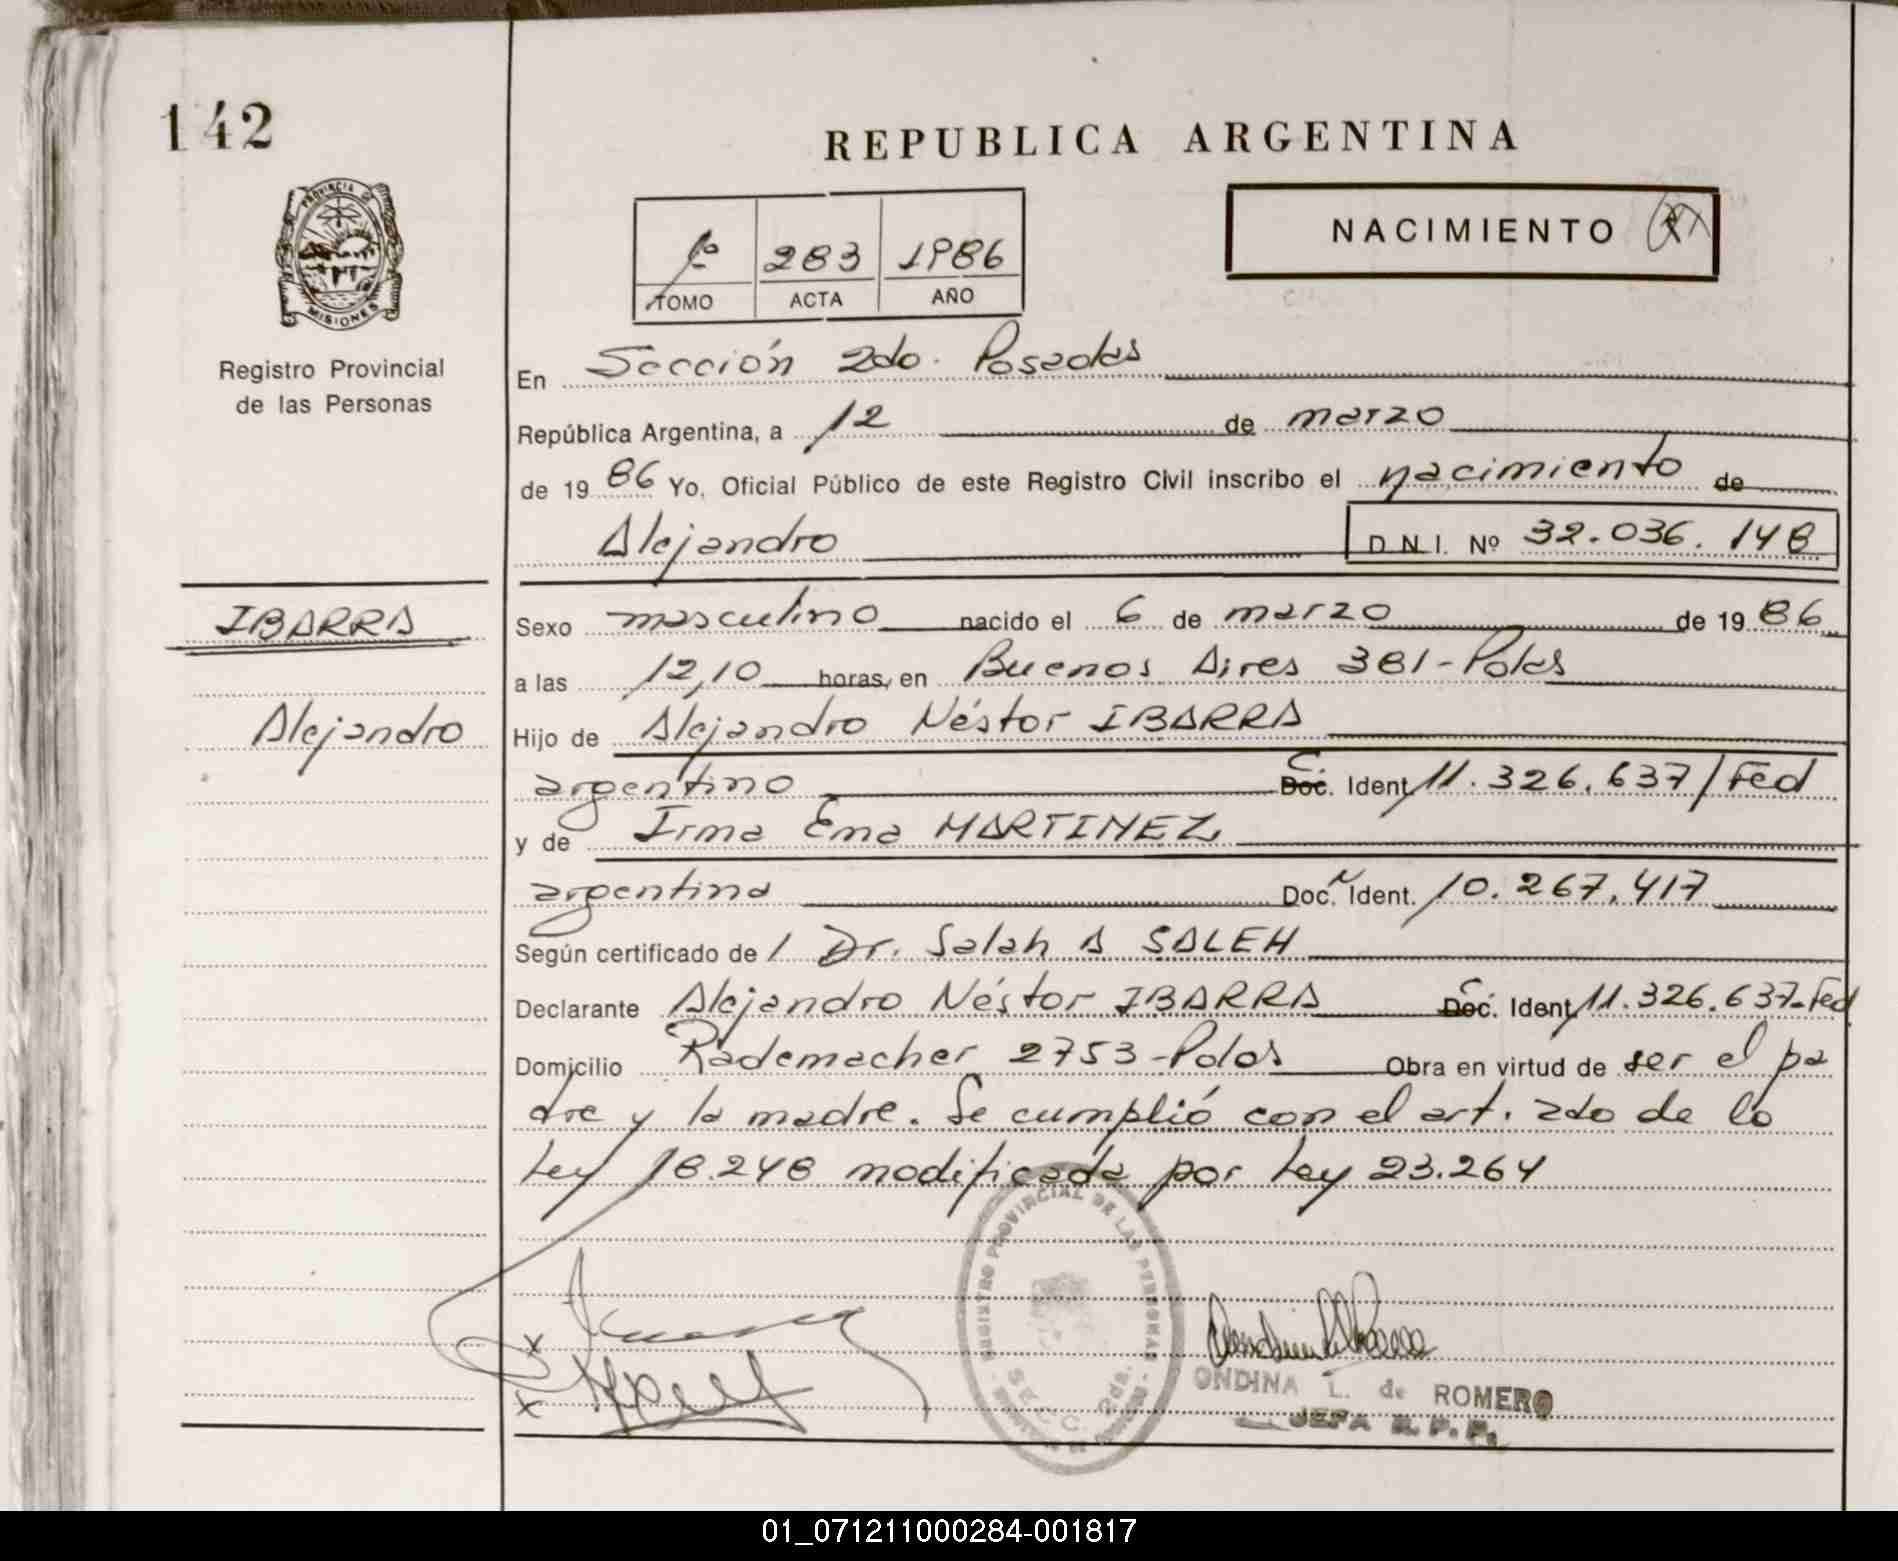 142
REPUBLICA ARGENTINA
PROVINCIA DE
MISIONES
Registro Provincial
de las Personas
1º 283 1986
TOMO ACTA AÑO
NACIMIENTO
En Sección 2do. Posadas
República Argentina, a 12 de marzo
de 1986 Yo, Oficial Público de este Registro Civil inscribo el nacimiento de
Alejandro D.N.I. Nº 32.036.148
IBARRA
Alejandro
Sexo masculino nacido el 6 de marzo de 1986
a las 12,10 horas, en Buenos Aires 381-Pdas
Hijo de Alejandro Néstor IBARRA
argentino C. Doc. Ident. 11.326.637/Fed
y de Irma Ema MARTINEZ
argentina Doc. Ident. 10.267.417
Según certificado de / Dr. Salah A SALEH
Declarante Alejandro Néstor IBARRA C. Doc. Ident. 11.326.637-Fed
Domicilio Rademacher 2753-Pdas Obra en virtud de ser el pa
dre y la madre. Se cumplió con el art. 2do de la
Ley 18.248 modificada por Ley 23.264
REGISTRO PROVINCIAL DE LAS PERSONAS
SECC. 2da.
x
x
ONDINA L. de ROMERO
JEFA R.P.P.
01_071211000284-001817